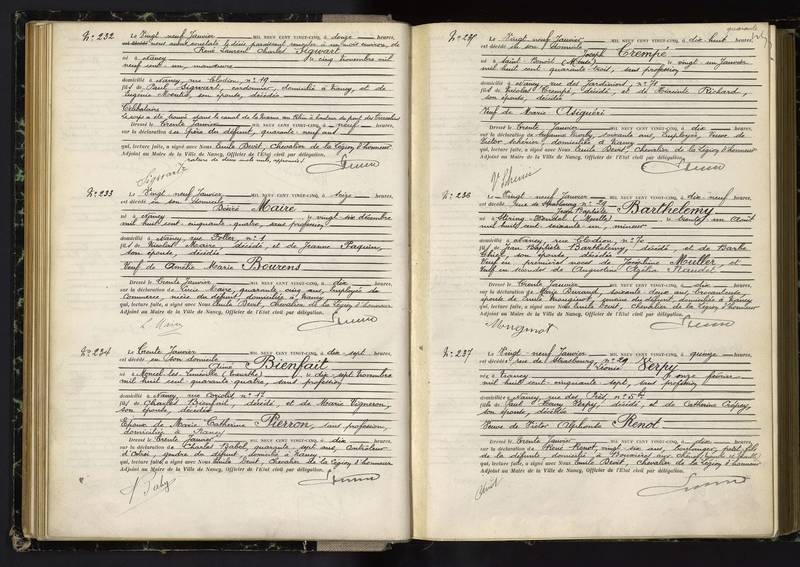 No. 232
Le Vingt neuf Janvier MIL NEUF CENT VINGT-CINQ, à douze heures,
René Laurent Charles Sigwart
né à Nancy le cinq novembre mil
neuf cent un, manœuvre
domicilié à Nancy rue Clodion nº 19
fils de Paul Sigwart, cordonnier, domicilié à Nancy, et de
Eugénie son épouse, décédée
Célibataire
Le corps a été trouvé dans le canal de la Marne au Rhin à hauteur du pont des
Dressé le Trente Janvier MIL NEUF CENT VINGT-CINQ, à neuf heures,
sur la déclaration de père du défunt, quarante neuf ans
qui, lecture faite, a signé avec Nous Emile Devit, Chevalier de la Légion d'honneur
Adjoint au Maire de la Ville de Nancy, Officier de l'Etat civil par délégation.
Sigwart
No. 233
Le Vingt neuf Janvier MIL NEUF CENT VINGT-CINQ, à seize heures,
est décédé en son domicile
Désiré Maire
né à Nancy le vingt six décembre
mil huit cent cinquante quatre, sans profession
domicilié à Nancy, rue nº 1
fils de Nicolas Maire, décédé, et de Jeanne Paquin,
son épouse, décédée
Veuf de Amélie Marie Bourens
Dressé le Trente Janvier MIL NEUF CENT VINGT-CINQ, à dix heures,
sur la déclaration de Lucie Maire, quarante cinq ans, Employée de
Commerce, nièce du défunt, domiciliée à Nancy
qui, lecture faite, a signé avec Nous Emile Devit, Chevalier de la Légion d'honneur
Adjoint au Maire de la Ville de Nancy, Officier de l'Etat civil par délégation.
L. Maire
No. 234
Le Trente Janvier MIL NEUF CENT VINGT-CINQ, à dix-sept heures,
est décédé en son domicile
Aimé Bienfait
né à Moncel-les-Lunéville (Meurthe) le dix-sept Novembre
mil huit cent quarante-quatre, sans profession
domicilié à Nancy, rue nº 17
fils de Charles Bienfait, décédé, et de Marie Vigneron,
son épouse, décédée
Epoux de Marie Catherine Pierron, sans profession,
domiciliée à Nancy
Dressé le Trente Janvier MIL NEUF CENT VINGT-CINQ, à dix heures,
sur la déclaration de Charles quarante sept ans, Contrôleur
d'Octroi, gendre du défunt, domicilié à Nancy
qui, lecture faite, a signé avec Nous Emile Devit, Chevalier de la Légion d'honneur
Adjoint au Maire de la Ville de Nancy, Officier de l'Etat civil par délégation.
quarante
No. 235
Le Vingt neuf Janvier MIL NEUF CENT VINGT-CINQ, à dix huit heures,
est décédé en son domicile
Joseph Crempé
né à Saint Benoit (Meuse) le vingt un Janvier
mil huit cent quarante trois, sans profession
domicilié à Nancy, rue des Jardiniers nº 70
fils de Nicolas Crempé, décédé, et de Richard,
son épouse, décédée
Veuf de Marie Asiguéri
Dressé le Trente Janvier MIL NEUF CENT VINGT-CINQ, à dix heures,
sur la déclaration de soixante ans, Employée, Veuve de
Victor domiciliée à Nancy
qui, lecture faite, a signé avec Nous Emile Devit, Chevalier de la Légion d'honneur
Adjoint au Maire de la Ville de Nancy, Officier de l'Etat civil par délégation.
No. 236
Le Vingt-neuf Janvier MIL NEUF CENT VINGT-CINQ, à dix neuf heures,
est décédé rue de Strasbourg nº 29
Jean Baptiste Barthelemy
né à Stiring-Wendel (Moselle) le trente un Août
mil huit cent soixante-un, mineur
domicilié à Nancy, rue Clodion nº 70
fils de Jean Baptiste Barthelemy, décédé, et de Barbe
son épouse, décédée
Veuf en premières noces de Joséphine Muller et
Veuf en secondes de Augustine Naudet
Dressé le Trente Janvier MIL NEUF CENT VINGT-CINQ, à dix heures,
sur la déclaration de Marie Durand, soixante deux ans,
épouse de Emile Mougenot, du défunt, domiciliée à Nancy
qui, lecture faite, a signé avec Nous Emile Devit, Chevalier de la Légion d'honneur
Adjoint au Maire de la Ville de Nancy, Officier de l'Etat civil par délégation.
No. 237
Le Vingt-neuf Janvier MIL NEUF CENT VINGT-CINQ, à quinze heures,
est décédée rue de Strasbourg nº 29
Léonie Serpy
née à Nancy le onze février
mil huit cent cinquante sept, sans profession
domiciliée à Nancy, rue des Prés,
fille de Paul Jean Serpy, décédé, et de Catherine
son épouse, décédée
Veuve de Victor Alphonse Renot
Dressé le Trente Janvier MIL NEUF CENT VINGT-CINQ, à dix heures,
sur la déclaration de René Renot, vingt six ans, boulanger, petit fils
de la défunte, domicilié à
qui, lecture faite, a signé avec Nous Emile Devit, Chevalier de la Légion d'honneur
Adjoint au Maire de la Ville de Nancy, Officier de l'Etat civil par délégation.